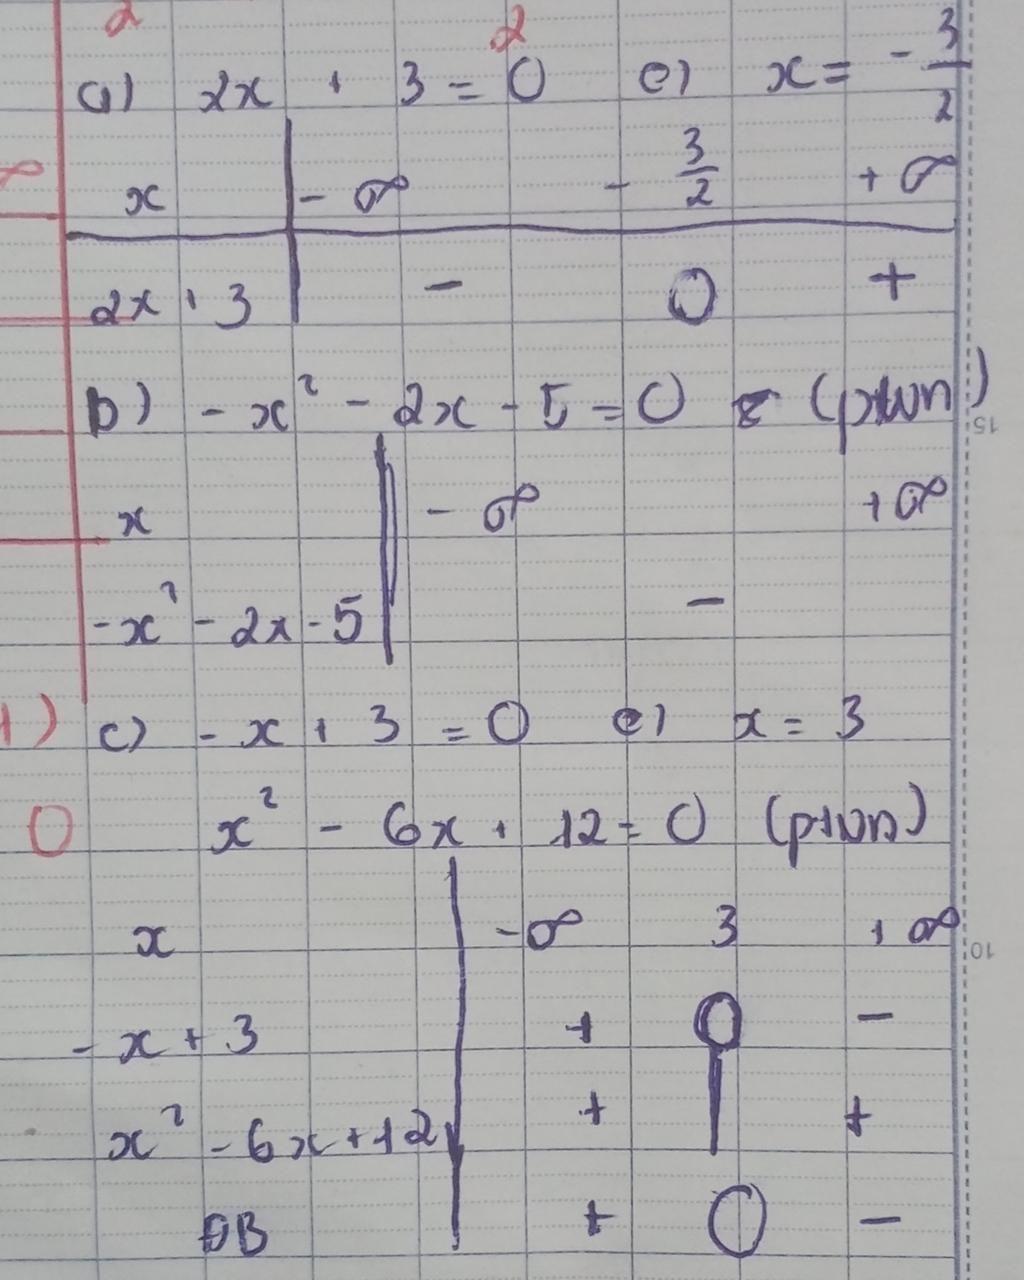 2
2
a) 2x + 3 = 0 <=> x = -3/2
x | -∞ -3/2 +∞
2x + 3 | - 0 +
b) -x² - 2x - 5 = 0 (ptvn)
15
x | -∞ +∞
-x² - 2x - 5 | -
1) c) -x + 3 = 0 <=> x = 3
0 x² - 6x + 12 = 0 (ptvn)
x | -∞ 3 +∞
10
-x + 3 | + 0 -
x² - 6x + 12 | + | +
ĐB | + 0 -